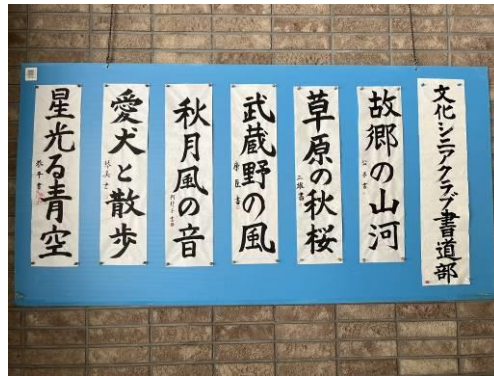 文化シニアクラブ書道部
故郷の山河
草原の秋桜
武蔵野の風
秋月風の音
愛犬と散歩
星光る青空